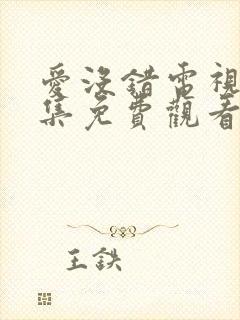 愛沒錯電視
集免費觀看
王鉄